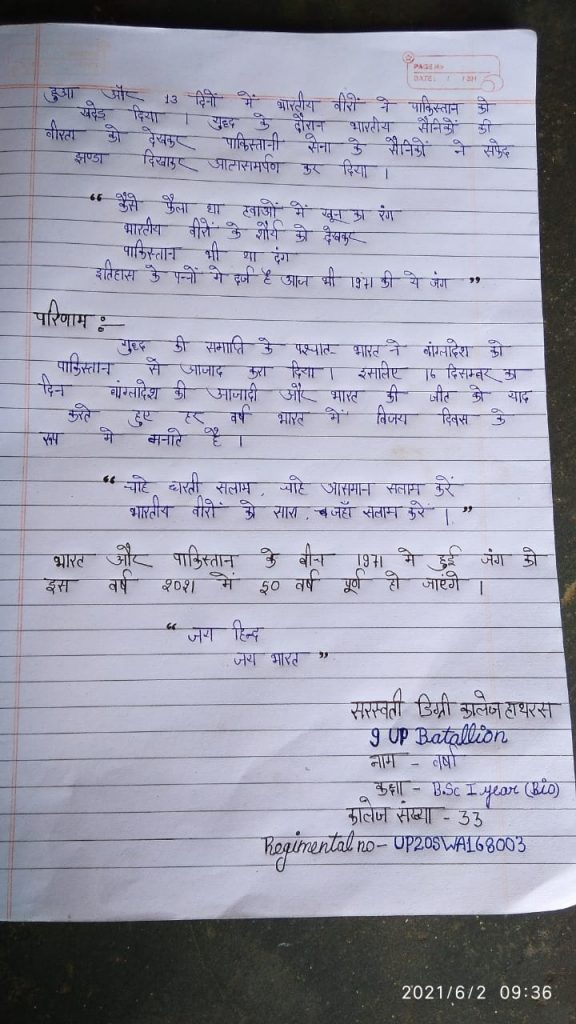 PAGE NO.
DATE: / /
हुआ और 13 दिनों में भारतीय वीरों ने पाकिस्तान को
खदेड़ दिया । युध्द के दौरान भारतीय सैनिकों की
वीरता को देखकर पाकिस्तानी सेना के सैनिकों ने सफेद
झण्डा दिखाकर आत्मसमर्पण कर दिया ।
“ कैसे फैला था हवाओं में खून का रंग
भारतीय वीरों के शौर्य को देखकर
पाकिस्तान भी था दंग
इतिहास के पन्नों मे दर्ज है आज भी 1971 की ये जंग ”
परिणाम :-
युध्द की समाप्ति के पश्चात भारत ने बांग्लादेश को
पाकिस्तान से आजाद करा दिया । इसलिए 16 दिसम्बर का
दिन बांग्लादेश की आजादी और भारत की जीत को याद
करते हुए हर वर्ष भारत में विजय दिवस के
रूप मे मनाते है ।
“ चाहे धरती सलाम, चाहे आसमान सलाम करें
भारतीय वीरों को सारा, जहाँ सलाम करें । ”
भारत और पाकिस्तान के बीच 1971 मे हुई जंग को
इस वर्ष २०२१ में ५० वर्ष पूर्ण हो जाएंगे ।
“ जय हिन्द
जय भारत ”
सरस्वती डिग्री कालेज हाथरस
9 UP Batallion
नाम - वर्षा
कक्षा - B.Sc I year (Bio)
कालेज संख्या - 33
Regimental no- UP20SWA168003
2021/6/2 09:36